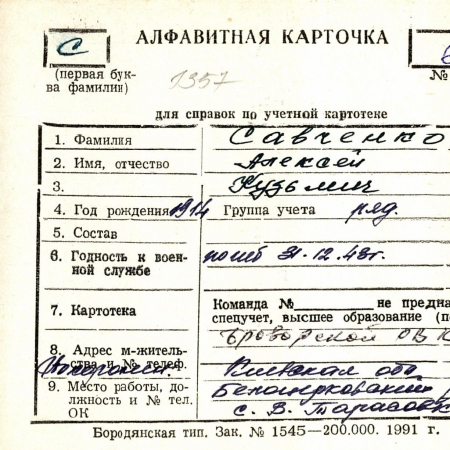 С
АЛФАВИТНАЯ КАРТОЧКА
(первая бук-
ва фамилии)
1357
№
для справок по учетной картотеке
1. Фамилия Савченко
2. Имя, отчество Алексей
3. Кузьмич
4. Год рождения 1914 Группа учета ряд.
5. Состав
6. Годность к воен-
ной службе погиб 31.12.43г.
7. Картотека Команда № не предна
спецучет, высшее образование (п
Броварской ОВК
8. Адрес м-житель-
ства и № телеф. Киевская обл
9. Место работы, до- Белоцерковский
лжность и № тел. с. В. Тарасовк
ОК
Бородянская тип. Зак. № 1545—200.000. 1991 г.